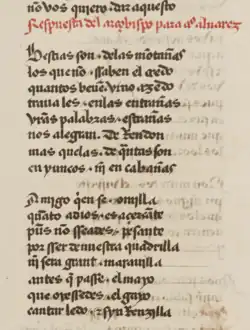 no vos quiero dar aquesto
Respuesta del arçobispo para aº aluarez
Bestias son de las mõtañas
los que nõ saben el credo
quantos beuẽ vino azedo
traua les en las entrañas
vr̃as palabras estrañas
nos alegran de Rendon
mas que las de q̃ntos son
en yuncos nĩ en cabañas
Amigo q̃en se omilla
quãto a dios es açebtante
pũs no seades p̃sante
por sser de nuestra quadrilla
nĩ sera grant marauilla
antes q̃ passe el mayo
que oyessedes el gayo
cantar ledo syn renzilla